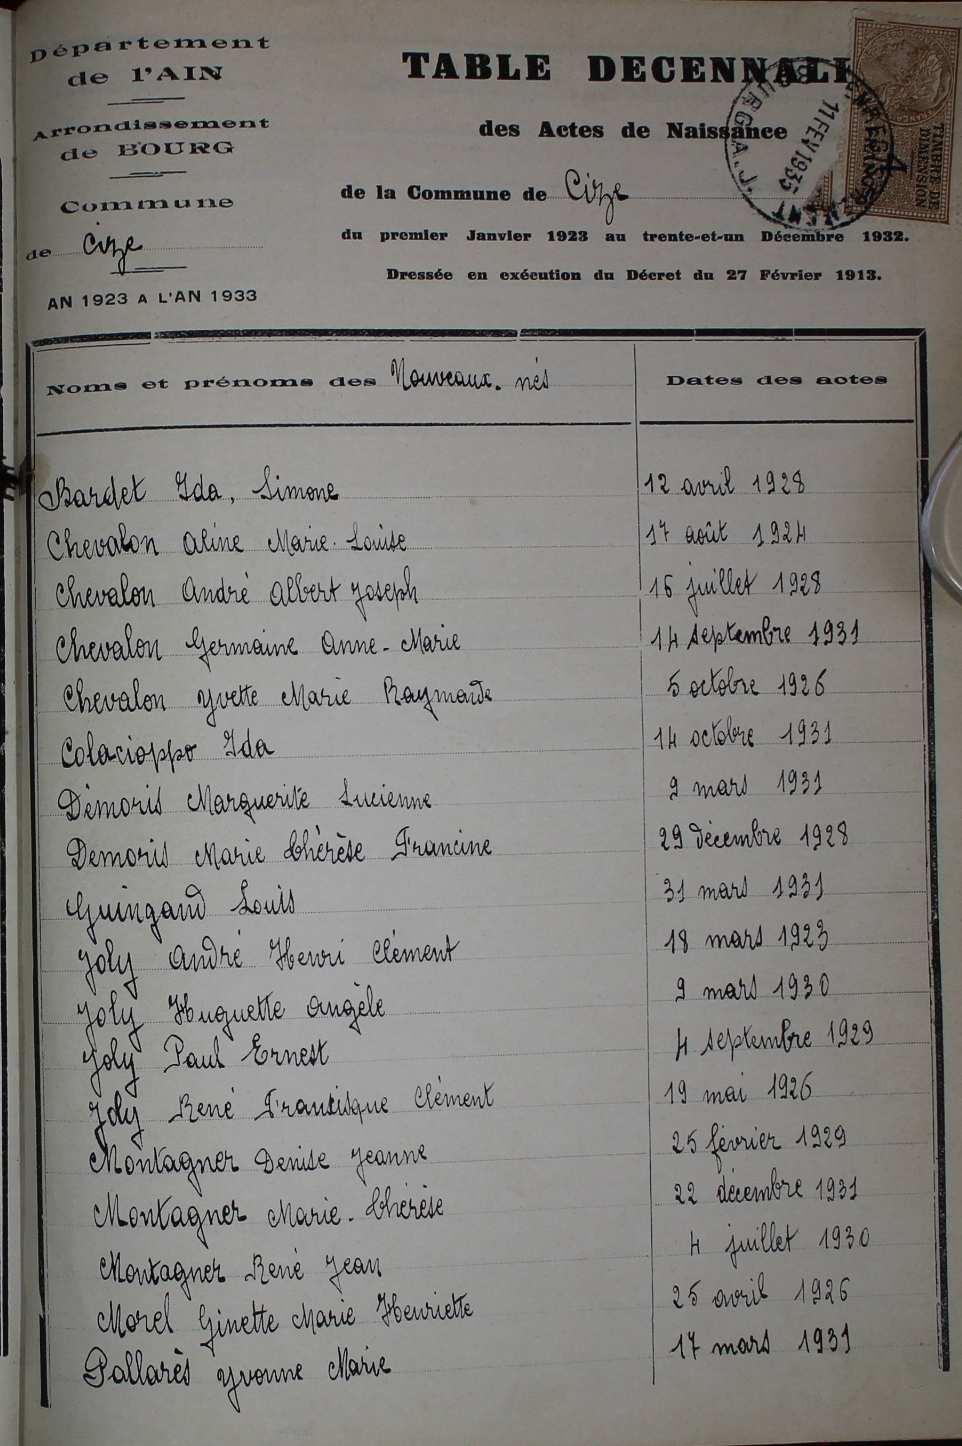 Département
de l'AIN
Arrondissement
de BOURG
Commune
de Cize
AN 1923 A L'AN 1933
TABLE DECENNALE
des Actes de Naissance
de la Commune de Cize
du premier Janvier 1923 au trente-et-un Décembre 1932.
Dressée en exécution du Décret du 27 Février 1913.
11 FEV 1935
TIMBRE DE
DIMENSION
Noms et prénoms des Nouveaux-nés
Dates des actes
Bardet Ida, Simone 12 avril 1928
Chevalon Aline Marie-Louise 17 août 1924
Chevalon André Albert Joseph 16 juillet 1928
Chevalon Germaine Anne-Marie 14 septembre 1931
Chevalon Yvette Marie Raymonde 5 octobre 1926
Colacioppo Ida 14 octobre 1931
Démoris Marguerite Lucienne 9 mars 1931
Demoris Marie Thérèse Francine 29 décembre 1928
Guingand Louis 31 mars 1931
Joly André Henri Clément 18 mars 1923
Joly Huguette Angèle 9 mars 1930
Joly Paul Ernest 4 septembre 1929
Joly René Francisque Clément 19 mai 1926
Montagner Denise Jeanne 25 février 1929
Montagner Marie-Thérèse 22 décembre 1931
Montagner René Jean 4 juillet 1930
Morel Ginette Marie Henriette 25 avril 1926
Pallarès Yvonne Marie 17 mars 1931